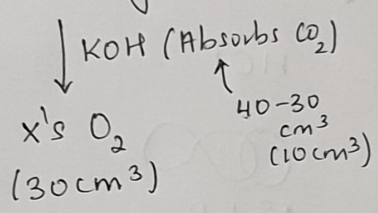 KOH (Absorbs CO2)
40-30
cm³
(10cm³)
x's O2
(30cm³)